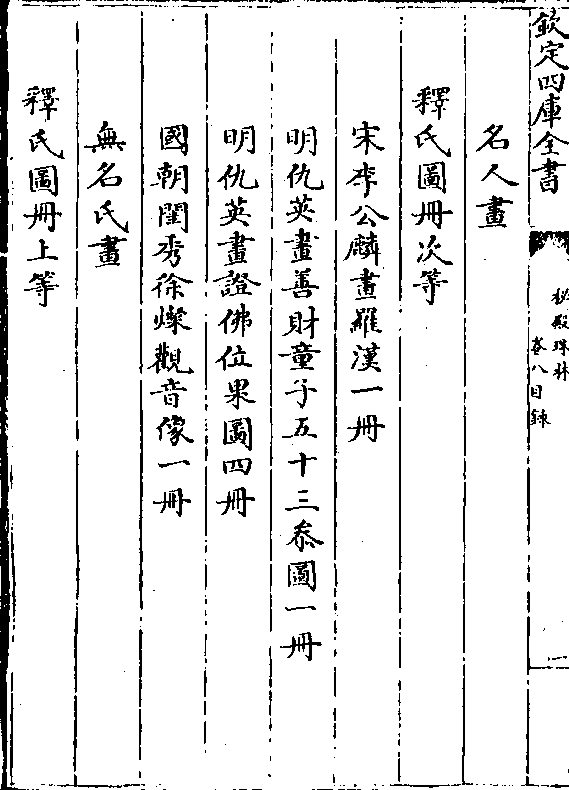 欽定四庫全書
秘殿珠林
卷八目錄
一
名人畫
釋氏圖冊次等
宋李公麟畫羅漢一冊
明仇英畫善財童子五十三叅圖一冊
明仇英畫證佛位果圖四冊
國朝閨秀徐燦觀音像一冊
無名氏畫
釋氏圖冊上等